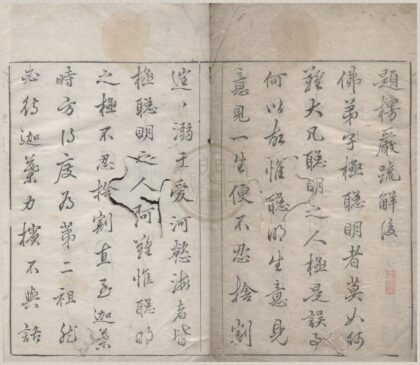 題楞嚴疏解後
佛弟子極聰明者莫如阿
難大凡聰明之人極是誤事
何以故惟聰明生意見
意見一生便不忍捨割
往〻溺于愛河慾海者皆
極聰明之人阿難惟聰明
之極不忍捨割直至迦葉
時方得度為第二祖然
必待迦葉力擯不與話